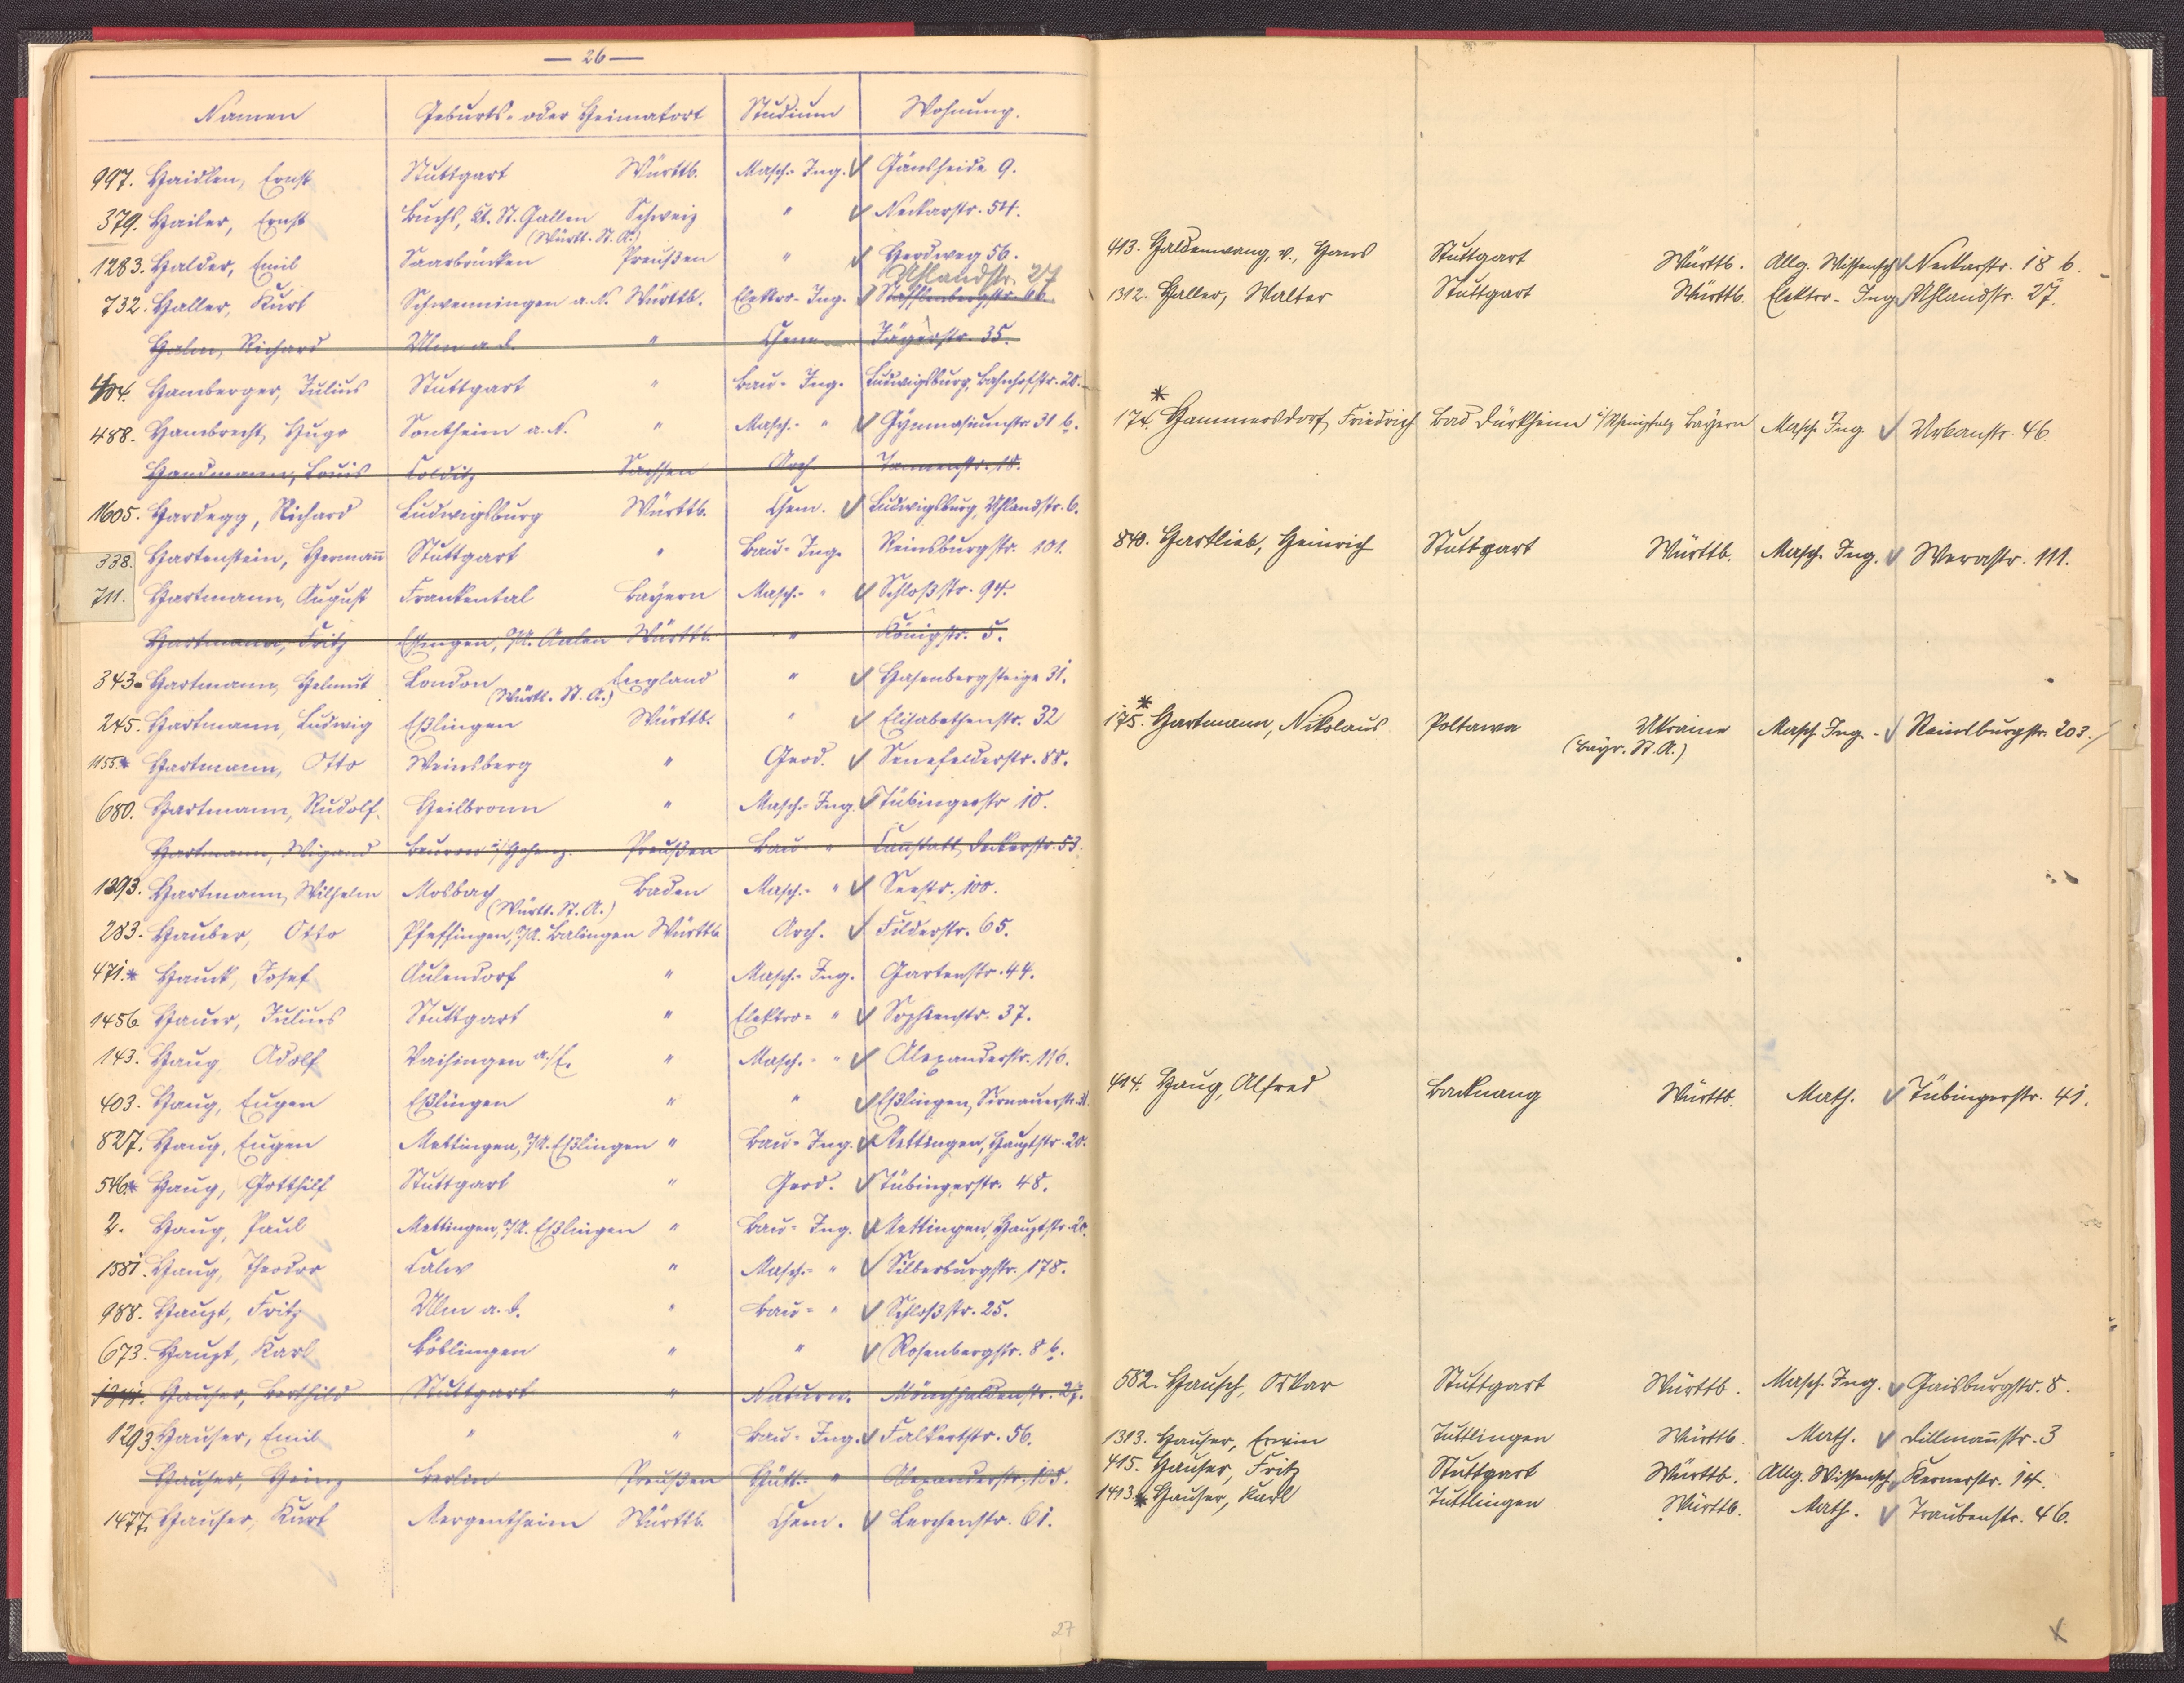 — 26 —
Namen Geburts- oder Heimatort Studium Wohnung.
997. Haidlen, Ernst Stuttgart Württb. Masch.-Ing. ✓ Gänsheide 9.
379. Hailer, Ernst Buchs, Kt. St. Gallen Schweiz " ✓ Neckarstr. 54.
(Württ. St. A.)
1283. Halder, Emil Saarbrücken Preußen " ✓ Herdweg 56.
Uhlandstr. 27
732. Haller, Kurt Schwenningen a. N. Württb. Elektro-Ing. ✓ Stafflenbergstr. 66.
Halm, Richard Ulm a. D. " Chem. Jägerstr. 35.
404. Hamberger, Julius Stuttgart " Bau-Ing. Ludwigsburg, Bahnhofstr. 20.
488. Hambrecht, Hugo Sontheim a. N. " Masch.- " ✓ Gymnasiumstr. 31 b.
Handmann, Louis Colditz Sachsen Arch. Tannenstr. 18.
1605. Hardegg, Richard Ludwigsburg Württb. Chem. ✓ Ludwigsburg, Uhlandstr. 6.
338. Hartenstein, Hermañ Stuttgart " Bau-Ing. Reinsburgstr. 101.
711. Hartmann, August Frankental Bayern Masch.- " ✓ Schloßstr. 94.
Hartmann, Fritz Essingen, O/A. Aalen Württb. " Königstr. 5.
343. Hartmann, Helmut London England " ✓ Hasenbergsteige 31.
(Württ. St. A.)
245. Hartmann, Ludwig Eßlingen Württb. " ✓ Elisabethenstr. 32
1155.* Hartmann, Otto Weinsberg " Geod. ✓ Senefelderstr. 88.
680. Hartmann, Rudolf Heilbronn " Masch.-Ing. ✓ Tübingerstr. 10.
Hartmann, Wigand Beuron i/Hohenz. Preußen Bau- " Cannstatt, Deckerstr. 53.
1393. Hartmann, Wilhelm Mosbach Baden Masch.- " ✓ Seestr. 100.
(Württ. St. A.)
283. Hauber, Otto Pfeffingen, O/A. Balingen Württb. Arch. ✓ Filderstr. 65.
471.* Hauck, Josef Aulendorf " Masch.-Ing. Gartenstr. 44.
1456 Hauer, Julius Stuttgart " Elektro- " ✓ Sophienstr. 37.
143. Haug Adolf Vaihingen a./E. " Masch.- " ✓ Alexanderstr. 116.
403. Haug, Eugen Eßlingen " " ✓ Eßlingen, Sirnauerstr.
827. Haug, Eugen Mettingen, O/A. Eßlingen " Bau-Ing. ✓ Mettingen, Hauptstr. 20.
546.* Haug, Gotthilf Stuttgart " Geod. ✓ Tübingerstr. 48.
2. Haug, Paul Mettingen, O/A. Eßlingen " Bau-Ing. ✓ Mettingen, Hauptstr. 20.
1581. Haug, Theodor Calw " Masch.- " ✓ Silberburgstr. 178.
988. Haupt, Fritz Ulm a. D. " Bau- " ✓ Schloßstr. 25.
673. Haupt, Karl Böblingen " " ✓ Rosenbergstr. 8 b.
Hauser, Berthild Stuttgart " Naturw. Mönchhaldenstr. 27.
1293. Hauser, Emil " " Bau-Ing. ✓ Falkertstr. 56.
Hauser, Heinz Berlin Preußen Hütt.- " Alexanderstr. 105.
1477. Hauser, Kurt Mergentheim Württb. Chem. ✓ Lerchenstr. 61.
27
413. Haldenwang, v., Hans Stuttgart Württb. Allg. Wissensch. ✓ Neckarstr. 18 b.
1312. Haller, Walter Stuttgart Württb. Elektro-Ing. ✓ Uhlandstr. 27.
*
174. Hammersdorf, Friedrich Bad Dürkheim i/Rheinpfalz Bayern Masch. Ing. ✓ Urbanstr. 46.
840. Hartlieb, Heinrich Stuttgart Württb. Masch. Ing. ✓ Werastr. 111.
*
175. Hartmann, Nikolaus Poltawa Ukraine Masch. Ing. ✓ Reinsburgstr. 203.
(Bayr. St. A.)
414. Haug, Alfred Backnang Württb. Math. ✓ Tübingerstr. 41.
582. Hausch, Oskar Stuttgart Württb. Masch. Ing. ✓ Gaisburgstr. 8.
1313. Hauser, Erwin Tuttlingen Württb. Math. ✓ Dillmañstr. 3
415. Hauser, Fritz Stuttgart Württb. Allg. Wissensch. ✓ Kernerstr. 14.
1413.* Hauser, Karl Tuttlingen Württb. Math. ✓ Traubenstr. 46.
x